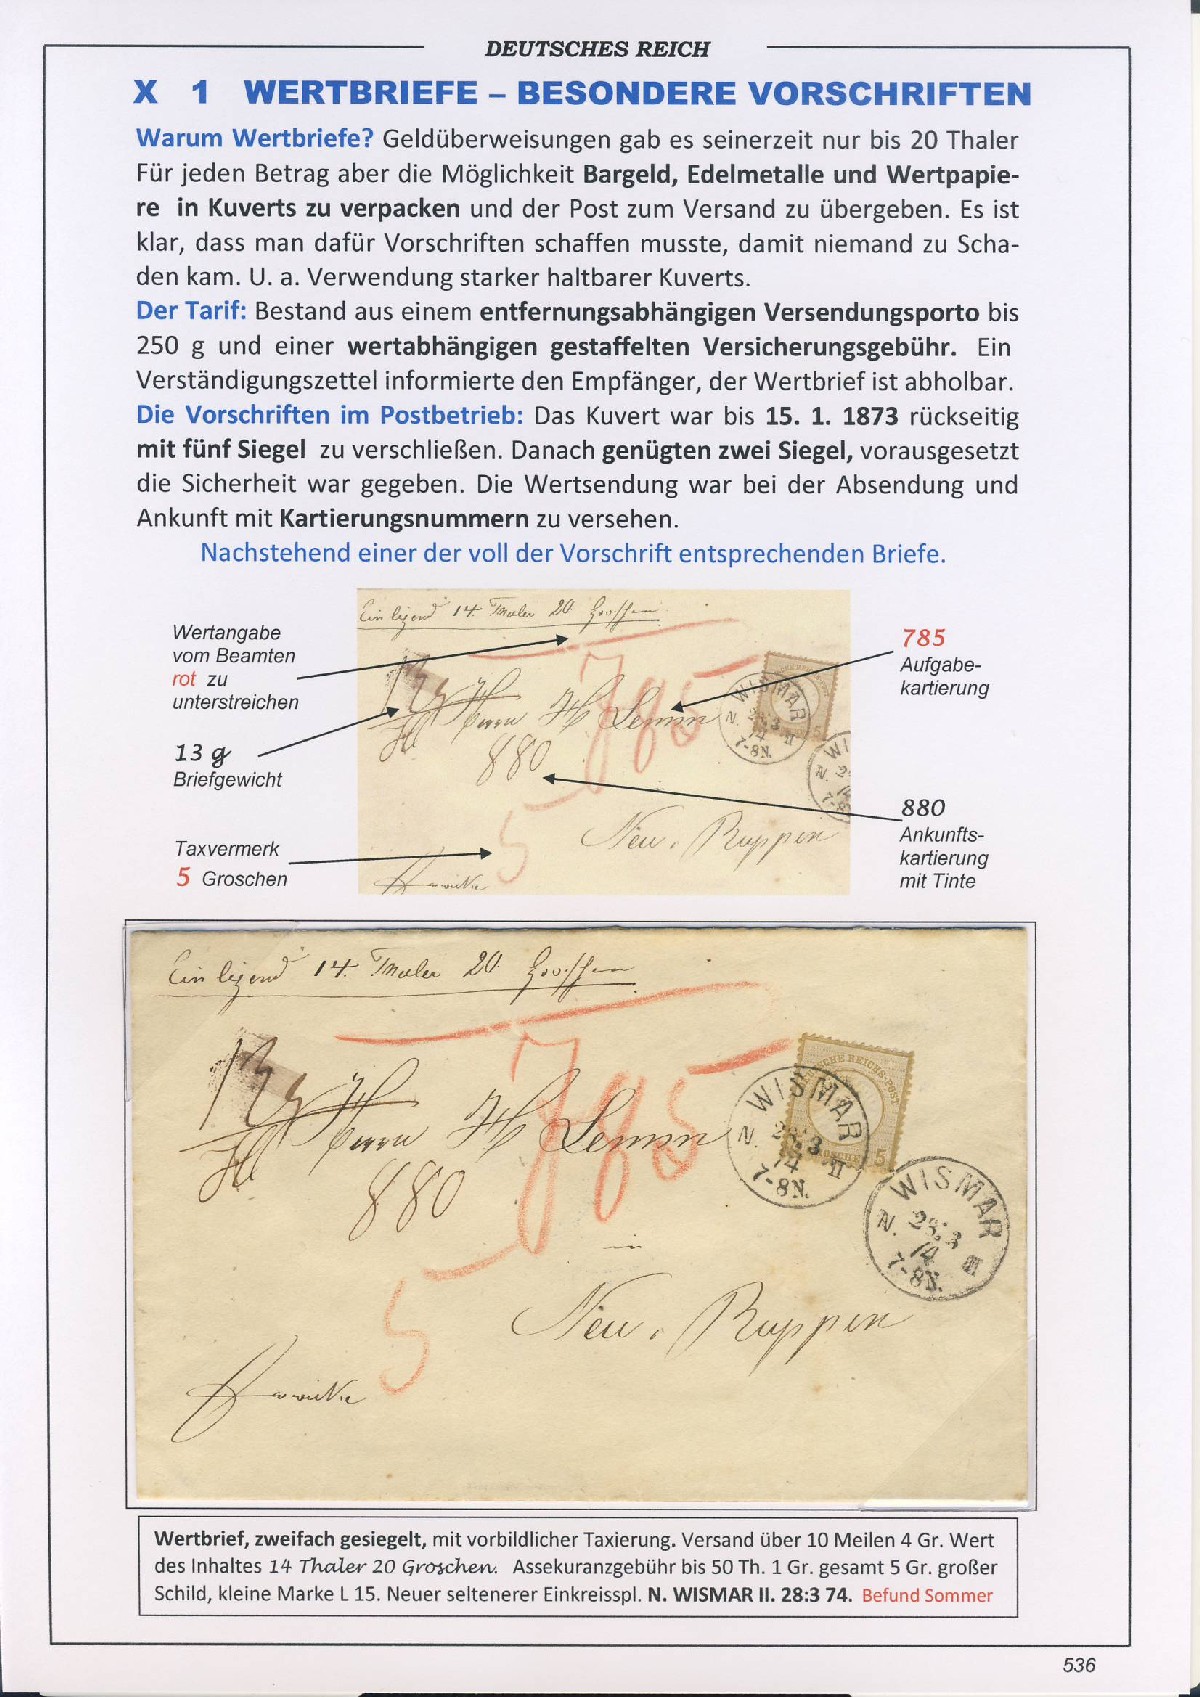 DEUTSCHES REICH
X 1 WERTBRIEFE – BESONDERE VORSCHRIFTEN
Warum Wertbriefe? Geldüberweisungen gab es seinerzeit nur bis 20 Thaler
Für jeden Betrag aber die Möglichkeit Bargeld, Edelmetalle und Wertpapie-
re in Kuverts zu verpacken und der Post zum Versand zu übergeben. Es ist
klar, dass man dafür Vorschriften schaffen musste, damit niemand zu Scha-
den kam. U. a. Verwendung starker haltbarer Kuverts.
Der Tarif: Bestand aus einem entfernungsabhängigen Versendungsporto bis
250 g und einer wertabhängigen gestaffelten Versicherungsgebühr. Ein
Verständigungszettel informierte den Empfänger, der Wertbrief ist abholbar.
Die Vorschriften im Postbetrieb: Das Kuvert war bis 15. 1. 1873 rückseitig
mit fünf Siegel zu verschließen. Danach genügten zwei Siegel, vorausgesetzt
die Sicherheit war gegeben. Die Wertsendung war bei der Absendung und
Ankunft mit Kartierungsnummern zu versehen.
Nachstehend einer der voll der Vorschrift entsprechenden Briefe.
Wertangabe
vom Beamten
rot zu
unterstreichen
13 g
Briefgewicht
Taxvermerk
5 Groschen
Einligend 14. Thaler 20 Groschen
785
Herrn H Lemm
880
5
Neu. Ruppin
WISMAR
N. 28.3 II
74
7-8N.
785
Aufgabe-
kartierung
880
Ankunfts-
kartierung
mit Tinte
Einligend 14. Thaler 20. Groschen
13
785
Herrn H Lemm
880
in
5
Neu. Ruppin
DEUTSCHE REICHS-POST
5
WISMAR
N. 28.3 II
74
7-8N.
WISMAR
N. 28.3 II
74
7-8N.
Wertbrief, zweifach gesiegelt, mit vorbildlicher Taxierung. Versand über 10 Meilen 4 Gr. Wert
des Inhaltes 14 Thaler 20 Groschen. Assekuranzgebühr bis 50 Th. 1 Gr. gesamt 5 Gr. großer
Schild, kleine Marke L 15. Neuer seltenerer Einkreisspl. N. WISMAR II. 28:3 74. Befund Sommer
536